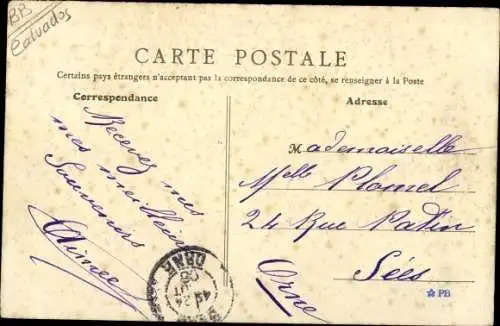 BB
Calvados
CARTE POSTALE
Certains pays étrangers n'acceptant pas la correspondance de ce côté, se renseigner à la Poste
Correspondance
Adresse
Recevez mes
mes meilleurs
Souvenirs
Aimee
Mademoiselle
Melle Plomel
24 Rue
Sées
Orne
ORNE
PB